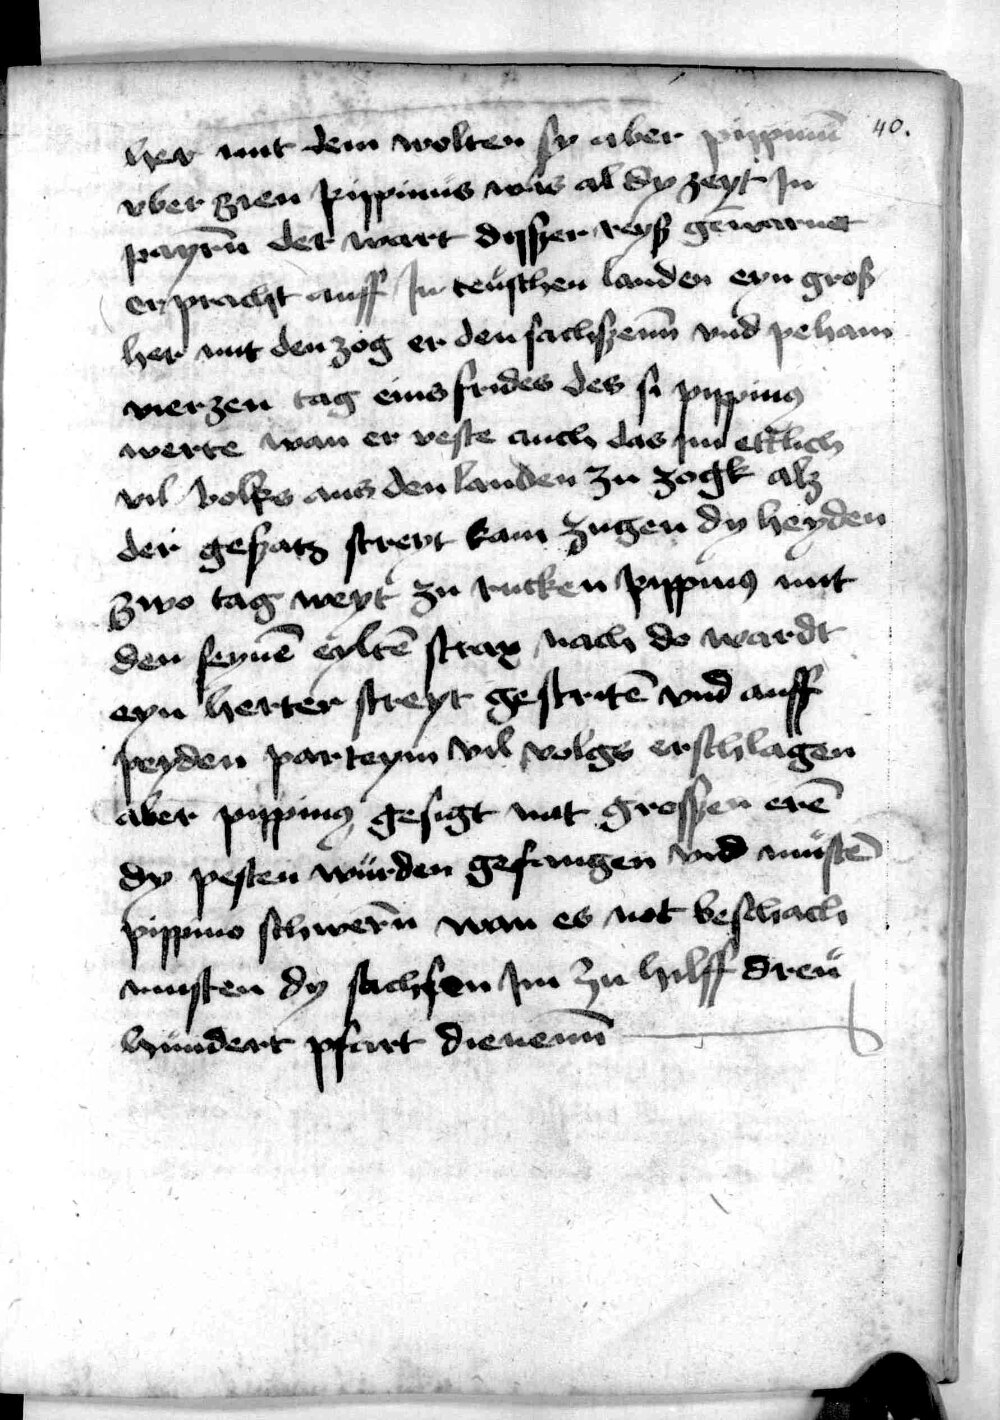 40.
her mit dem wolten sy aber pippinū
vber zien Pippinus was al dy zeyt In
payrn̄ der wart dysser reyß gewarnet
er pracht auff In teüschen landen eyn groß
her mit den zog er den sachssenn̄ vnd peham
vierzen tag eins frides des si pippinꝰ
werte wan er veste auch das im ettlich
vil volks aus den landen zu zogk alz
der gesatz streyt kam zugen dy heyden
zwo tag weyt zu rucken pippinꝰ mit
den seynē eyltē strax nach do wardt
eyn herter streyt gestritē vnd auff
peyden parteyin vil volgs erschlagen
aber pippinꝰ gesigt mit grossen erē
dy pesten würden gefangen vnd müstē
pippino schwern̄ wan es not beschach
musten dy sachsen Im zu hilff dreü
hundert pfart dienenn̄